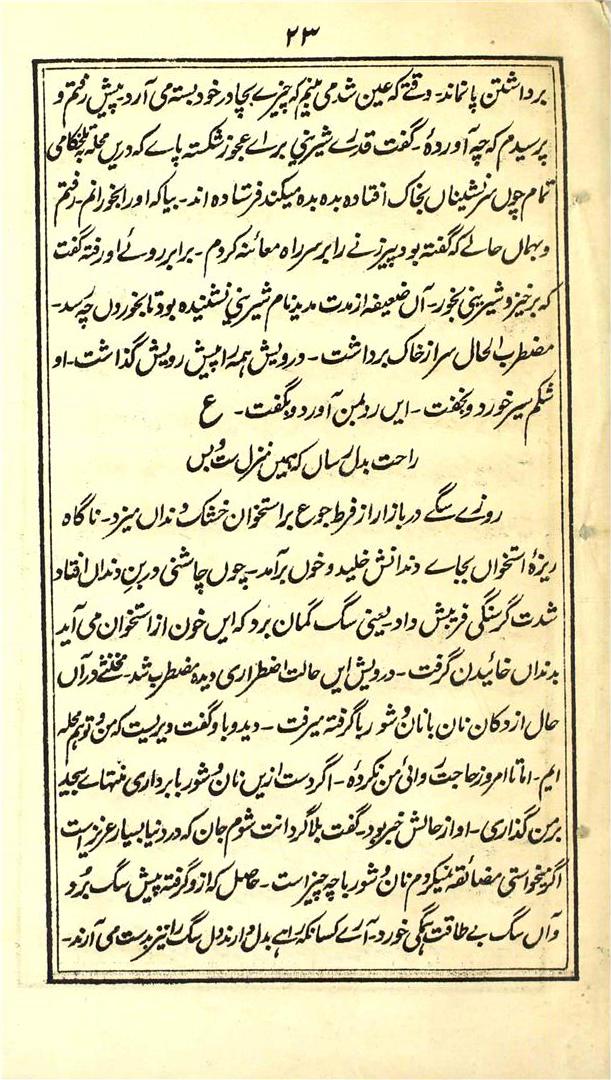 ۲۳
برداشتن پا نماند۔ وقتے کہ عین شد می بینم کہ چیزے بچادر خود بستہ می آرد۔ پیش رفتم و
پرسیدم کہ چہ آوردۂ۔ گفت قدرے شیرینی براے عجوز شکستہ پاے کہ دریں محلہ بتلخکامی
تمام چوں سرنشیناں بخاک افتادہ بدہ بدہ میکند فرستادہ اند۔ بیا کہ او را بخورانم۔ رفتم
و بہماں حالے کہ گفتہ بود پیرزنے را بر سر راہ معائنہ کردم۔ برابر روئے او رفتہ گفت
کہ برخیز و شیرینی بخور۔ آں ضعیفہ از مدت مدید نام شیرینی نشنیدہ بود تا بخوردں چہ رسد۔
مضطرب الحال سر از خاک برداشت۔ درویش ہمہ را پیش رویش گذاشت۔ او
شکم سیر خورد و بخفت۔ ایں رو بمن آورد و بگفت۔ ع
راحت بدل رساں کہ ہمیں منزل ست و بس
روزے سگے در بازار از فرط جوع بر استخوان خشک دنداں میزد۔ ناگاہ
ریزۂ استخواں بجاے دندانش خلید و خوں برآمد۔ چوں چاشنی در بن دنداں افتاد
شدت گرسنگی فریبش داد۔ یعنی سگ گمان برد کہ ایں خون از استخوان می آید
بدنداں خائیدن گرفت۔ درویش ایں حالت اضطراری دیدہ مضطرب شد۔ مخنثے در آں
حال از دکان نان بانان و شوربا گرفتہ میرفت۔ دید و با و گفت دیریست کہ من و تو ہم محلہ
ایم۔ اما تا امروز حاجت روائی من نکردۂ۔ اگر دست ازیں نان و شوربا برداری منتہاے بیحد
بر من گذاری۔ او از حالش خبر بود۔ گفت بلا گردانت شوم جان کہ در دنیا بسیار عزیز است
اگر میخواستی مضائقہ نمیکردم نان و شوربا چہ چیز است۔ حاصل کہ ازو گرفتہ پیش سگ برد
و آں سگ بے طاقت ہمگی خورد۔ آرے کسانیکہ راہے بدل دارند دل سگ را نیز بدست می آرند۔